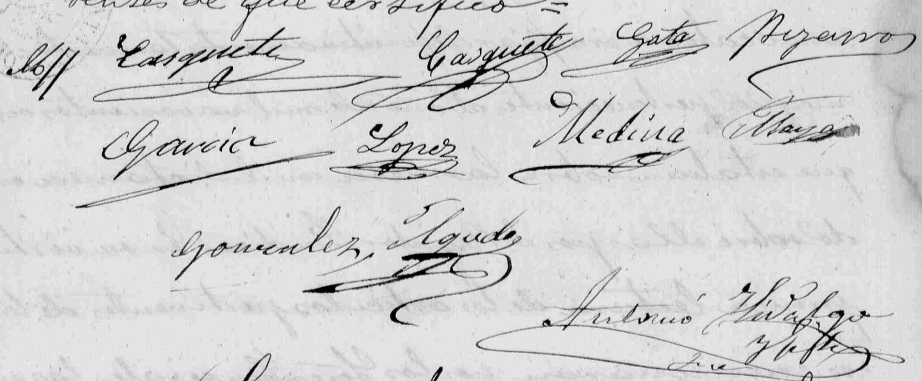 que certifico =
Casquete Casquete Gata Pizarro
Garcia Lopez Medina Maya
Gonzalez Agudo
Antonio Hidalgo